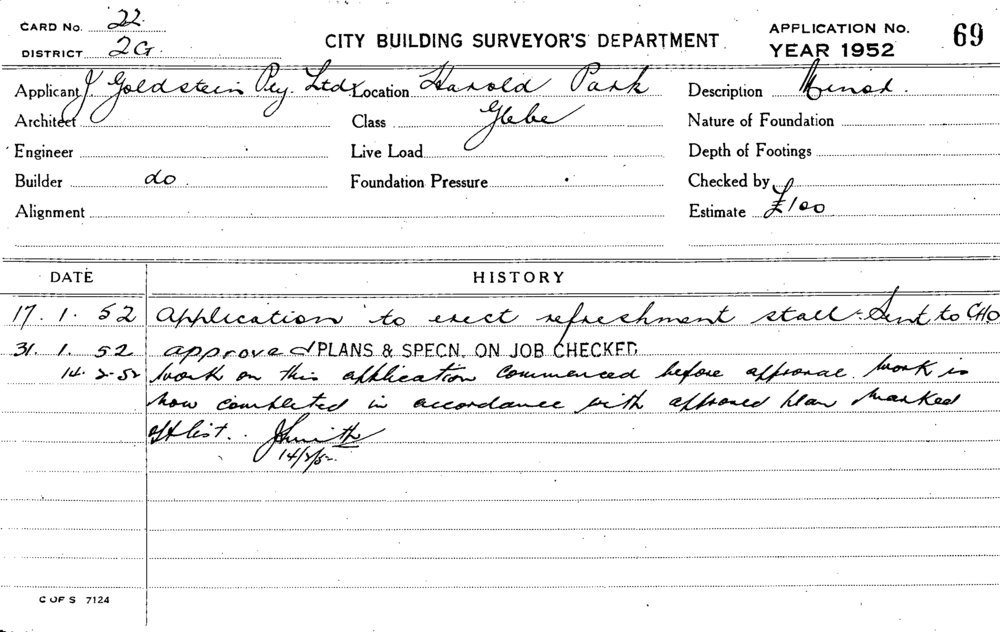 CARD No. 22
DISTRICT 2G.
CITY BUILDING SURVEYOR'S DEPARTMENT
APPLICATION No. 69
YEAR 1952
Applicant J Goldstein Pty. Ltd. Location Harold Park Description Minor.
Architect Class Glebe Nature of Foundation
Engineer Live Load Depth of Footings
Builder do Foundation Pressure Checked by
Alignment Estimate £100
DATE HISTORY
17. 1. 52 Application to erect refreshment stall. Sent to CHO
31. 1. 52 approved PLANS & SPECN. ON JOB CHECKED
14. 2. 52 Work on this application commenced before approval. Work is
now completed in accordance with approved plan Marked
off list. JSmith
14/2/52.
C OF S 7124